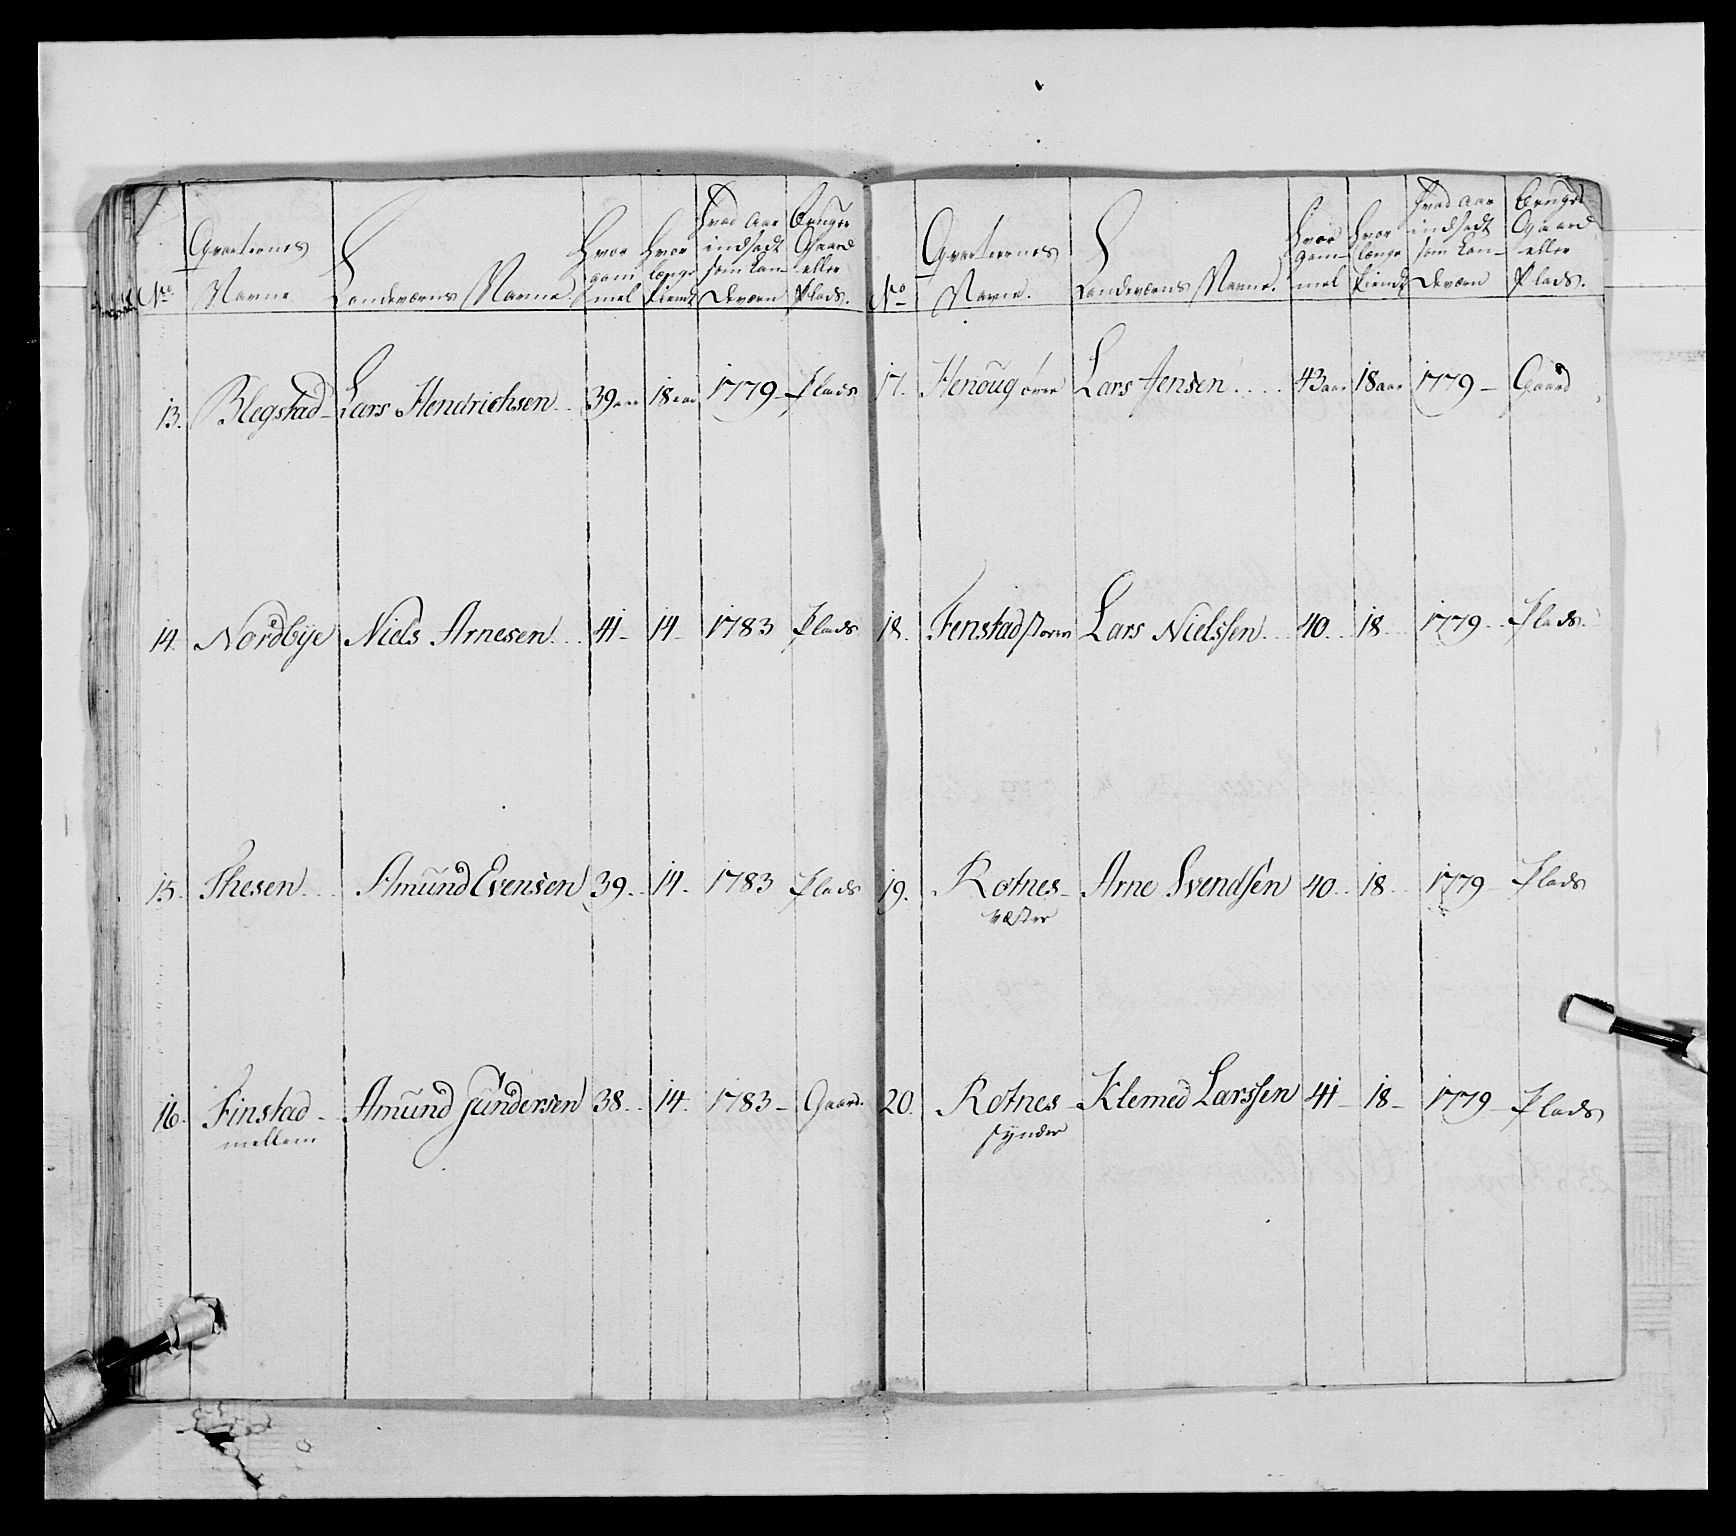 No
Qvarterernes
Navne
Landeværns Navne
Hvor
gam
mel
Hvor
længe
tient
Hvad Aar
indsadt
som Lan-
deværn
Bruger
Gaard
eller
Plads.
13. Blegstad- Lars Hendrichsen 39 aar 18 aar 1779- Plads
14. Nordbÿe Niels Arnesen 41- 14- 1783 Plads
15. Thesen Amund Evensen 39- 14- 1783 Plads
16. Finstad- Amund Gundersen 38- 14- 1783- Gaard.
mellem
No
Qvarterernes
Navne.
Landeværns Navne.
Hvor
gam-
mel
Hvor
længe
tient
Hvad Aar
indsadt
som Lan-
deværn
Bruger
Gaard
eller
Plads.
17. Henoug øvre Lars Jensen 43 aar 18 aar 1779- Gaard
18. Fenstad storre Lars Nielssen 40 18 1779- Plads.
19. Rotnes- Arne Svendsen 40 18 1779- Plads
Væster
20. Rotnes- Klemed Larssen 41- 18- 1779- Plads
synder